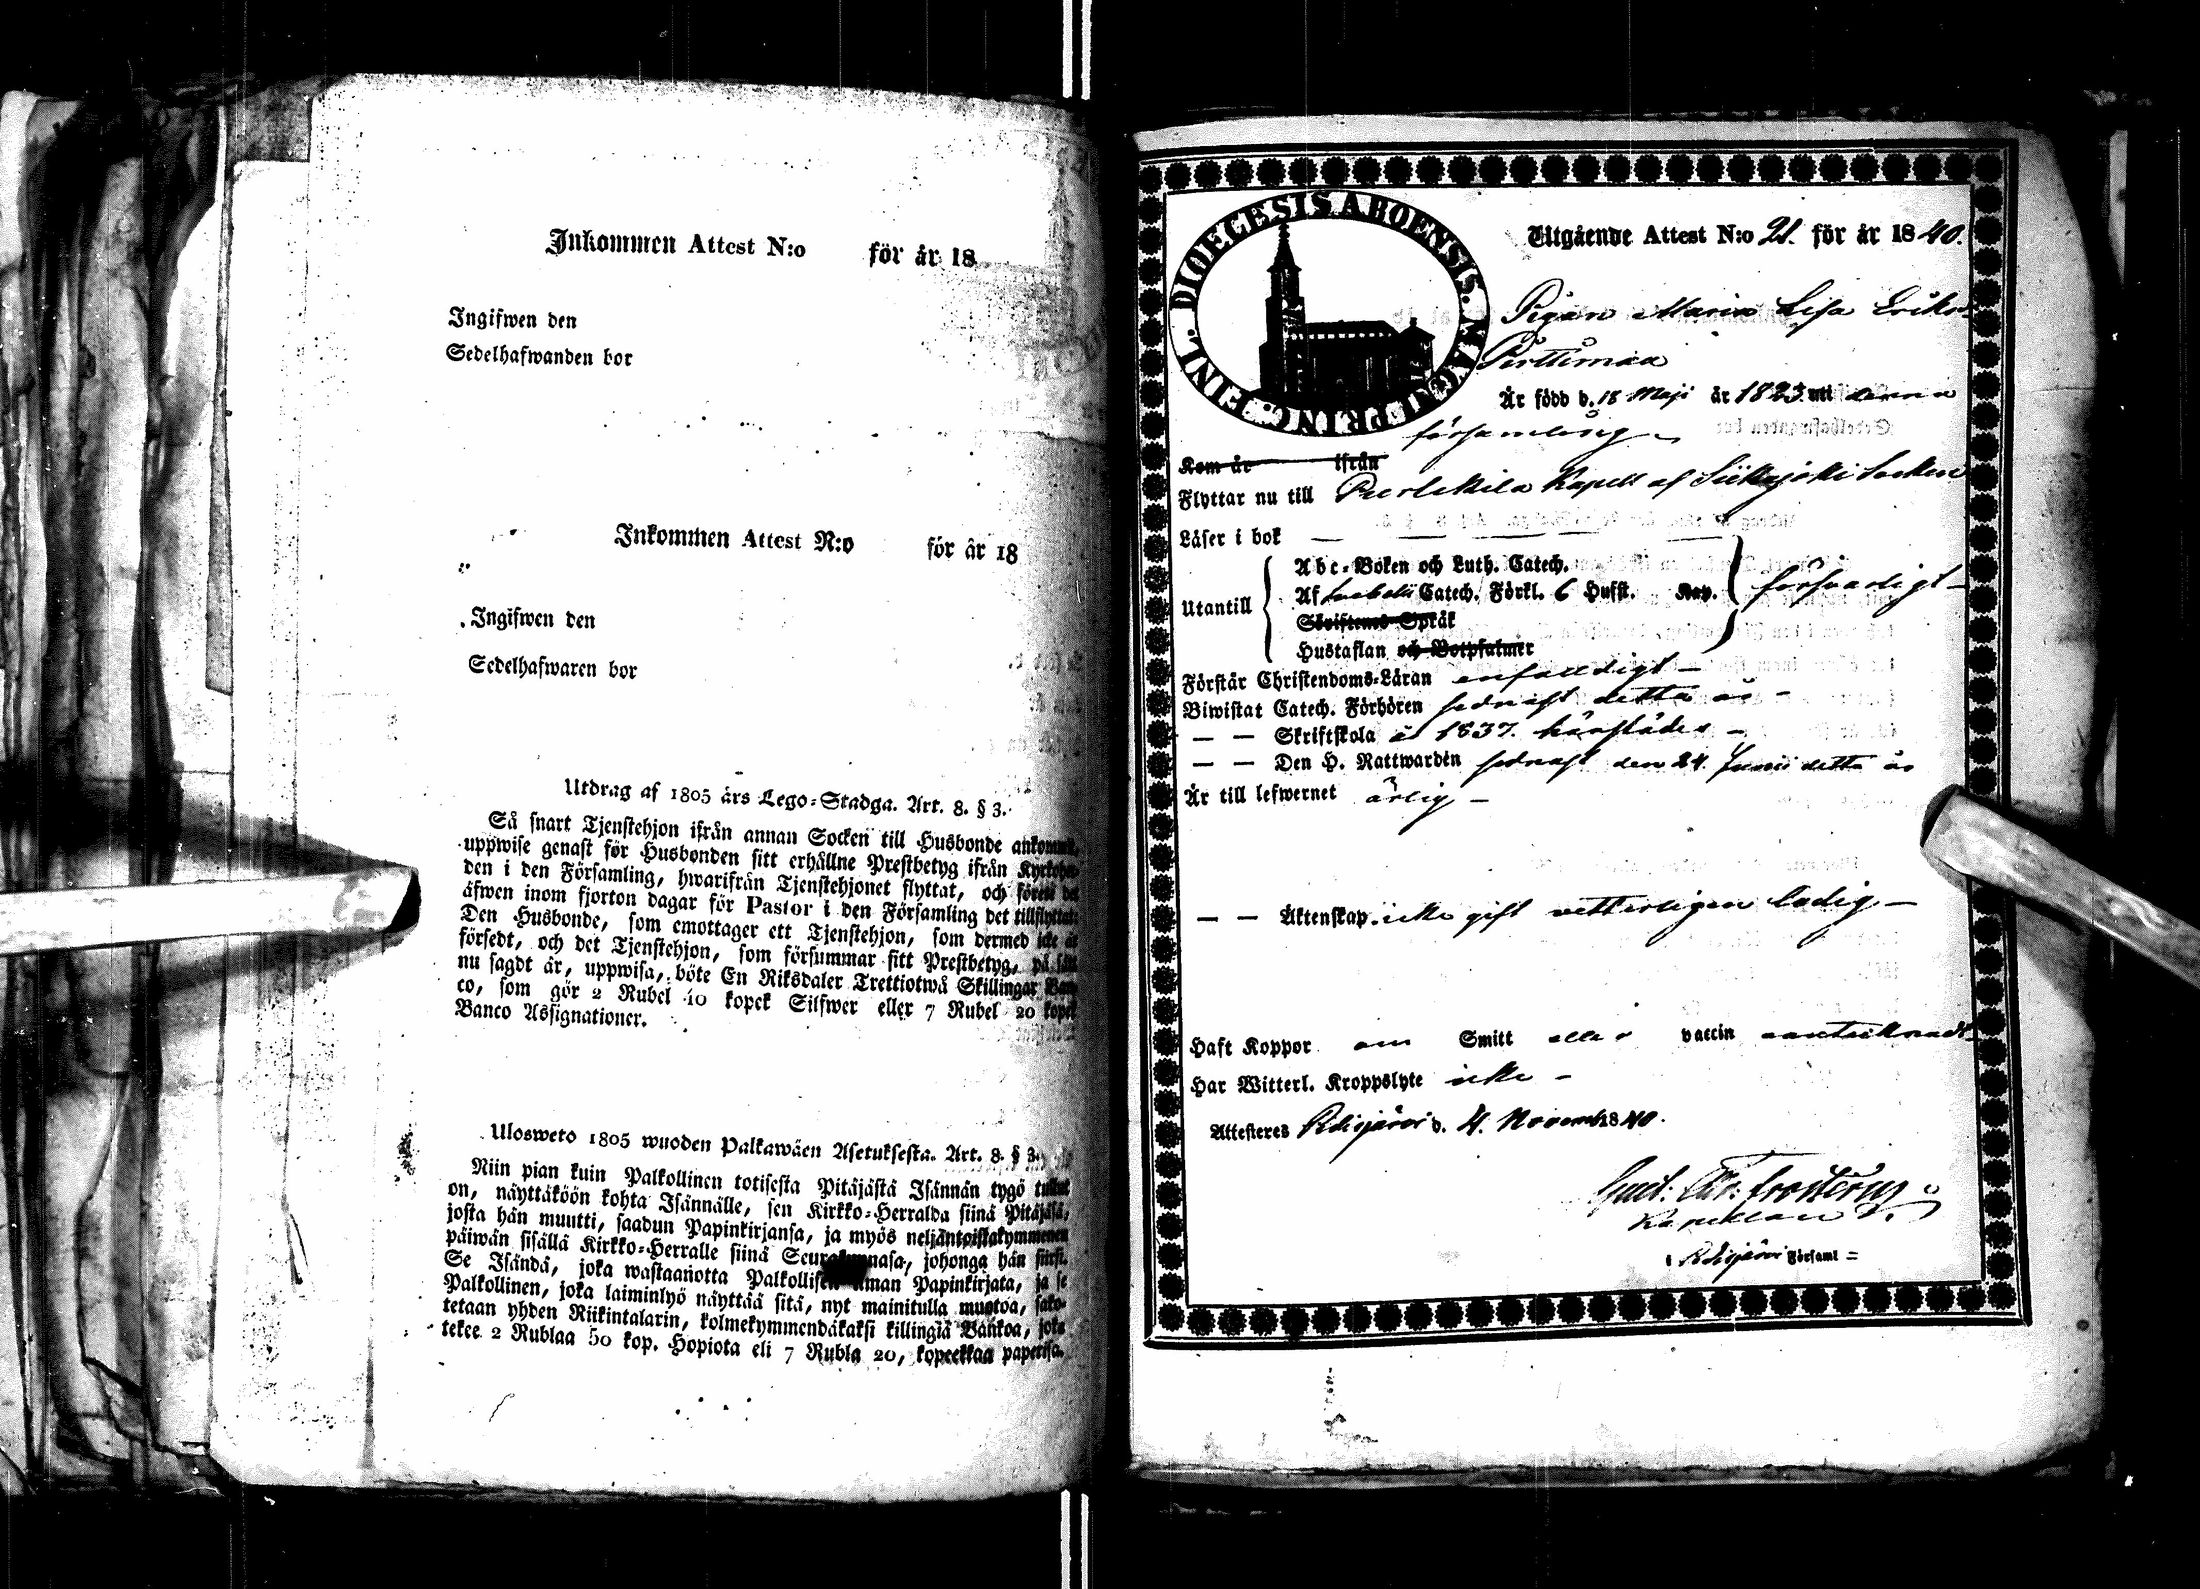 Inkommen Attest N:o för år 18
Ingifwen den
Sedelhafwanden bor
Inkommen Attest N:o för år 18
Ingifwen den
Sedelhafwaren bor
Utdrag af 1805 års Lego=Stadga. Art. 8. § 3.
Så snart Tjenstehjon ifrån annan Socken till Husbonde
uppwise genast för Husbonden sitt erhållne Prestbetyg ifrån
den i den Församling, hwarifrån Tjenstehjonet flyttat, och
äfwen inom fjorton dagar för Pastor i den Församling det
Den Husbonde, som emottager ett Tjenstehjon, som dermed icke är
försedt, och det Tjenstehjon, som försummar sitt Prestbetyg, på sätt
nu sagdt är, uppwisa, böte En Riksdaler Trettiotwå Skillingar Ban-
co, som gör 2 Rubel 40 kopek Silfwer eller 7 Rubel 20 kopek
Banco Assignationer.
Ulosweto 1805 wuoden Palkawäen Asetuksesta. Art. 8. § 3.
Niin pian kuin Palkollinen totisesta Pitäjästä Isännän tygö tullut
on, näyttäköön kohta Isännälle, sen Kirkko=Herralda siinä Pitäjäsä,
josta hän muutti, saadun Papinkirjansa, ja myös neljäntoistakymmenen
päiwän sisällä Kirkko=Herralle siinä johonga hän
Se Isändä, joka wastaanotta Palkollisen ilman Papinkirjata, ja se
Palkollinen, joka laiminlyö näyttää sitä, nyt mainitulla muotoa, sako-
tetaan yhden Riikintalarin, kolmekymmendäkaksi killingiä Bankoa, joka
tekee 2 Rublaa 50 kop. Hopiota eli 7 Rubla 20, kopeekkaa paperisa.
DIOECESIS ABOENSIS. MAG. PRINC. FINL.
Utgående Attest N:o 21. för år 1840.
Pigan Maria Lisa Eriks-
Perttunaa
Är född d. 18 Maji år 1823 uti denna
församling
Kom år ifrån
Flyttar nu till Kapell af Siikajoki Socken
Läser i bok
Abc=Boken och Luth. Catech.
Utantill Af Svebelii Catech. Förkl. 6 Hufst. Kap. försvarligt
Skriftenes Språk
Hustaflan och Botpsalmer
Förstår Christendoms=Läran enfaldigt
Biwistat Catech. Förhören sednast detta år
— — Skriftskola år 1837. härstädes
— — Den H. Nattwarden sednast den 24. Junii detta år
Är till lefwernet ärlig
— — Äktenskap. icke gift vetterligen ledig
Haft Koppor om Smitt eller vaccin oantecknadt
Har Witterl. Kroppslyte icke
Attesteres Pihajärvi d. 4. Novemb. 1840.
Gust. Chr. Frosterus
Kapellan
i Församl =